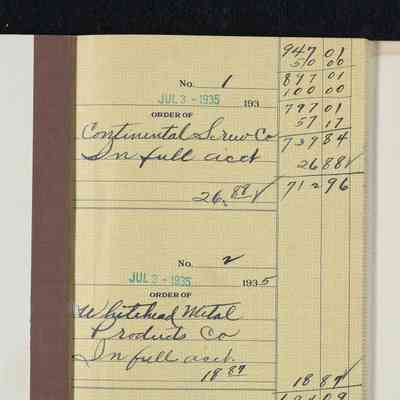 947 01
50 00
897 01
100 00
No. 1
JUL 3 - 1935 193
797 01
57 17
ORDER OF
Continental Screw Co
739 84
In full acct
26 88
26.88
712 96
No. 2
JUL 3 - 1935 1935
ORDER OF
Whitehead Metal
Products Co
In full acct.
18 87
18 87